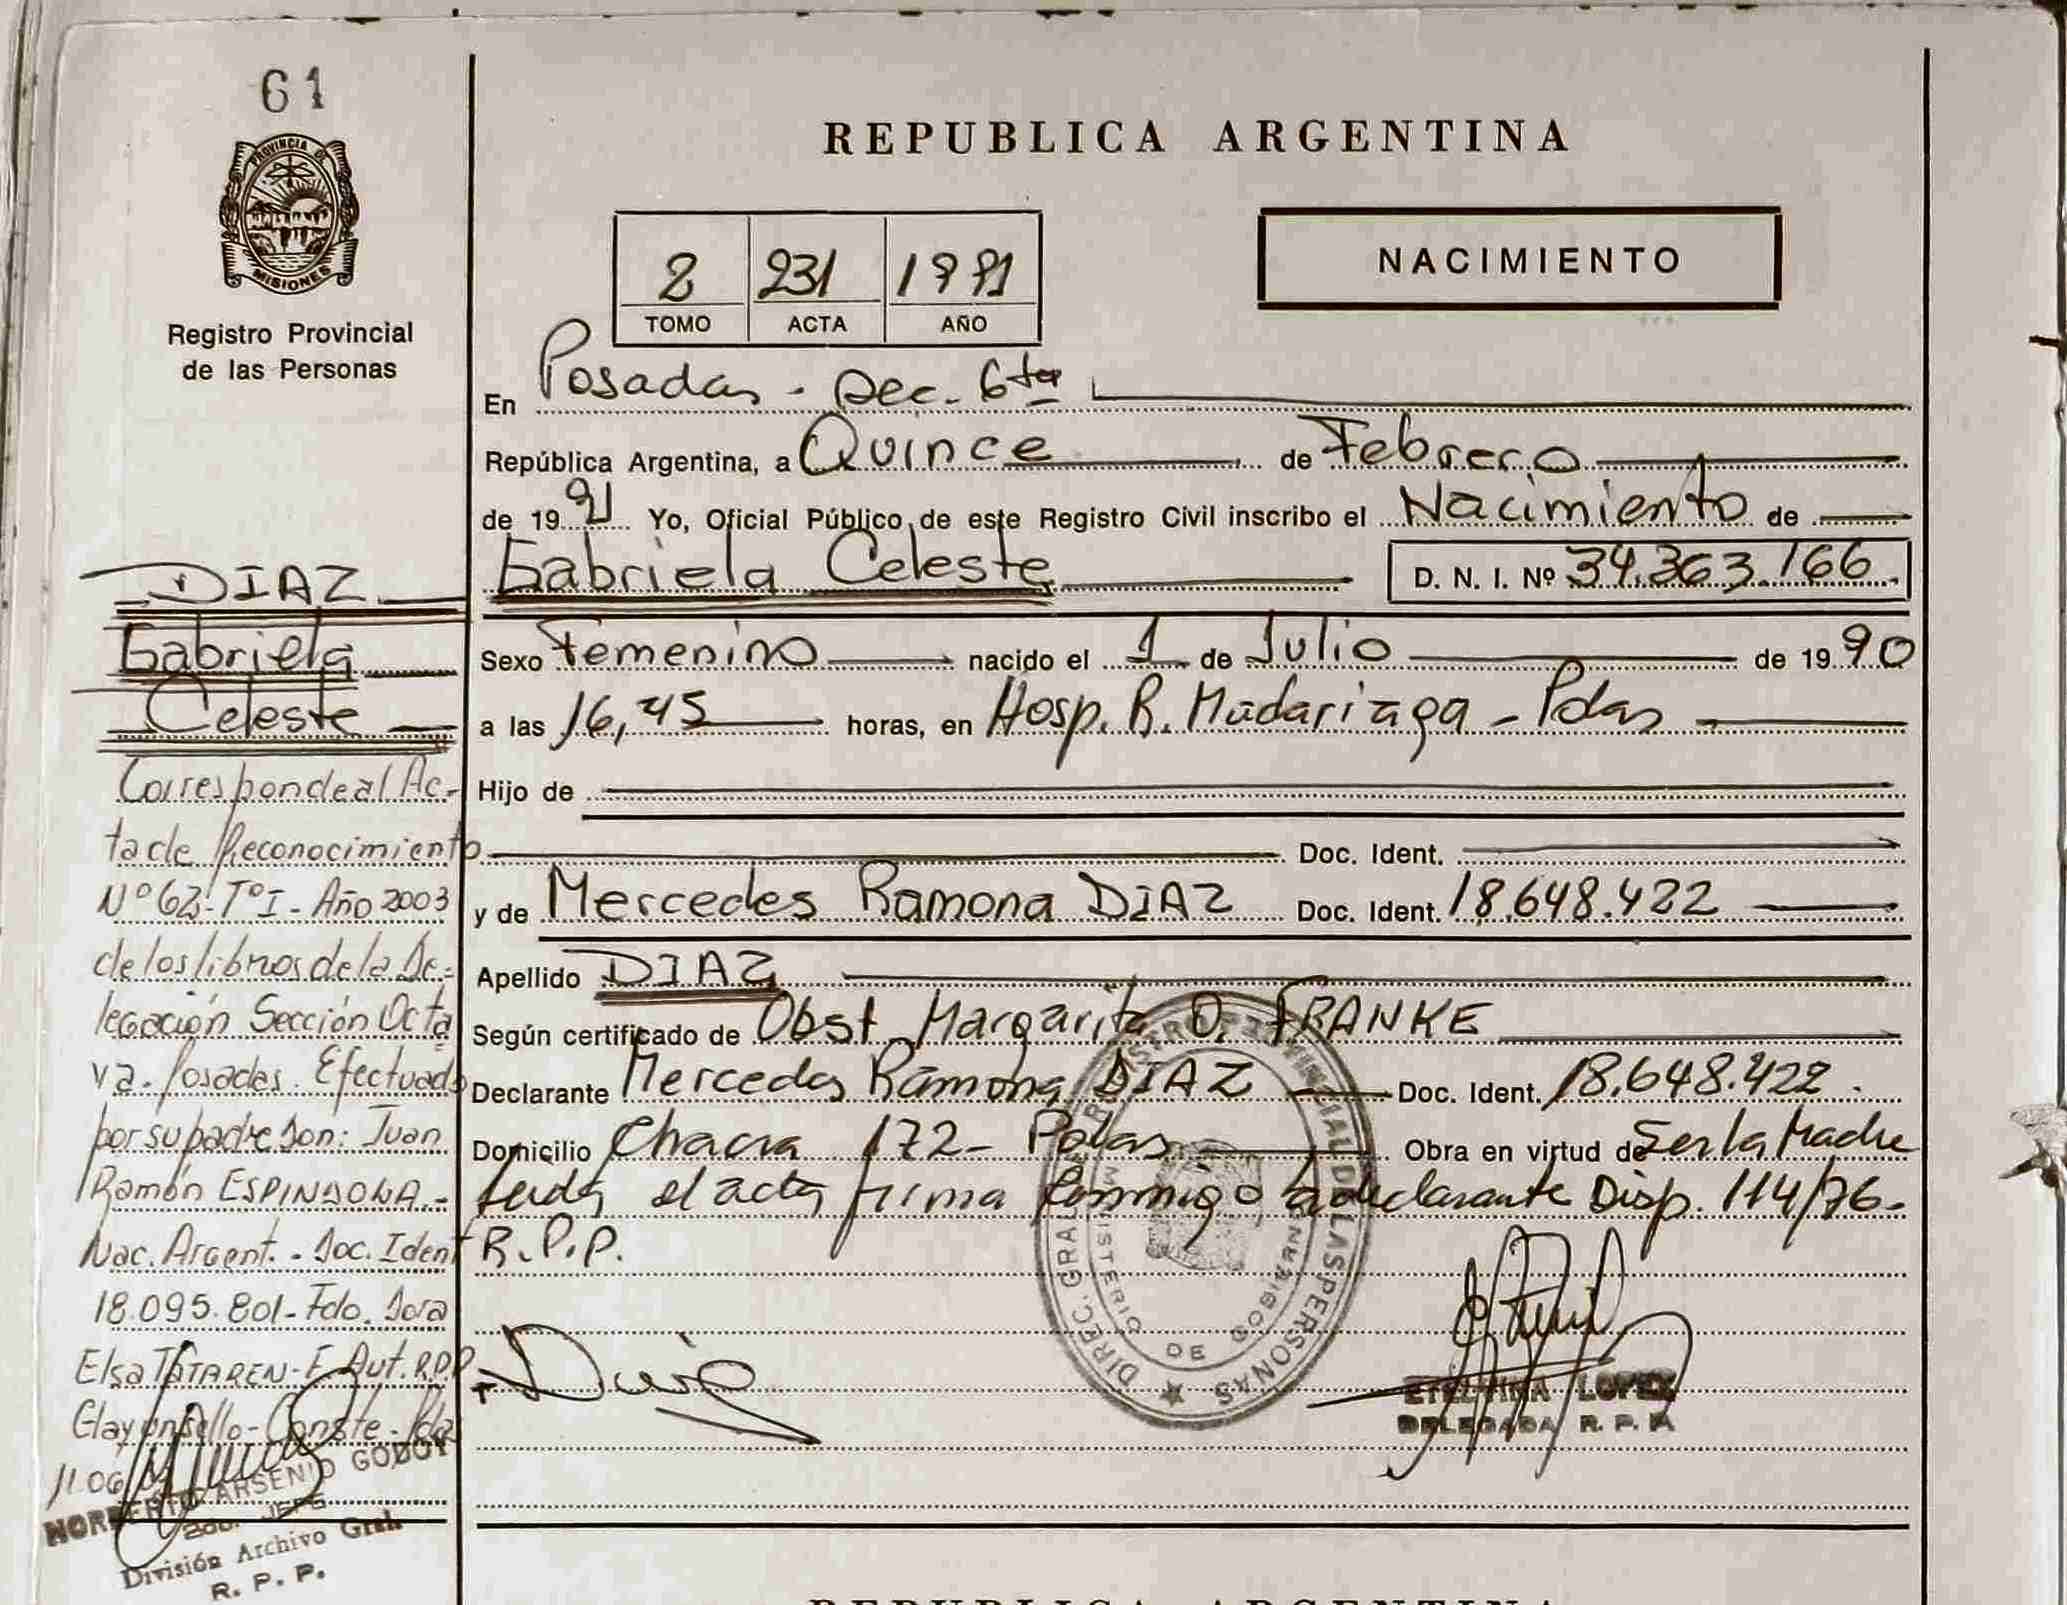 61
PROVINCIA DE
MISIONES
Registro Provincial
de las Personas
REPUBLICA ARGENTINA
2 231 1991
TOMO ACTA AÑO
NACIMIENTO
En Posadas - Sec. 6ta
República Argentina, a Quince de Febrero
de 1991 Yo, Oficial Público de este Registro Civil inscribo el Nacimiento de
Gabriela Celeste D. N. I. Nº 34.363.166
Sexo Femenino nacido el 1 de Julio de 1990
a las 16,45 horas, en Hosp. R. Madariaga - Pdas
Hijo de
Doc. Ident.
y de Mercedes Ramona DIAZ Doc. Ident. 18.648.422
Apellido DIAZ
Según certificado de Obst Margarita O. FRANKE
Declarante Mercedes Ramona DIAZ Doc. Ident. 18.648.422.
Domicilio Chacra 172- Pdas Obra en virtud de Ser la Madre
Leida el acta firma conmigo la declarante Disp. 114/76-
R.P.P.
DIAZ
Gabriela
Celeste
Corresponde al Ac-
ta de Reconocimiento
Nº 62- Tº I - Año 2003
de los libros de la De-
legación Sección Octa
va. Posadas. Efectuado
por su padre Don: Juan
Ramón ESPINDOLA.-
Nac. Argent. - Doc. Ident
18.095.801- Fdo. Dora
Elsa TATAREN- F. Aut. R.P.P
Hay un sello- Conste - Pdas
11.06
NORBERTO ARSENIO GODOY
2do. JEFE
División Archivo Gral.
R. P. P.
DIREC. GRAL. REGISTRO PROVINCIAL DE LAS PERSONAS
MINISTERIO DE GOBIERNO
ETELVINA LOPEZ
DELEGADA R. P. P.
REPUBLICA ARGENTINA